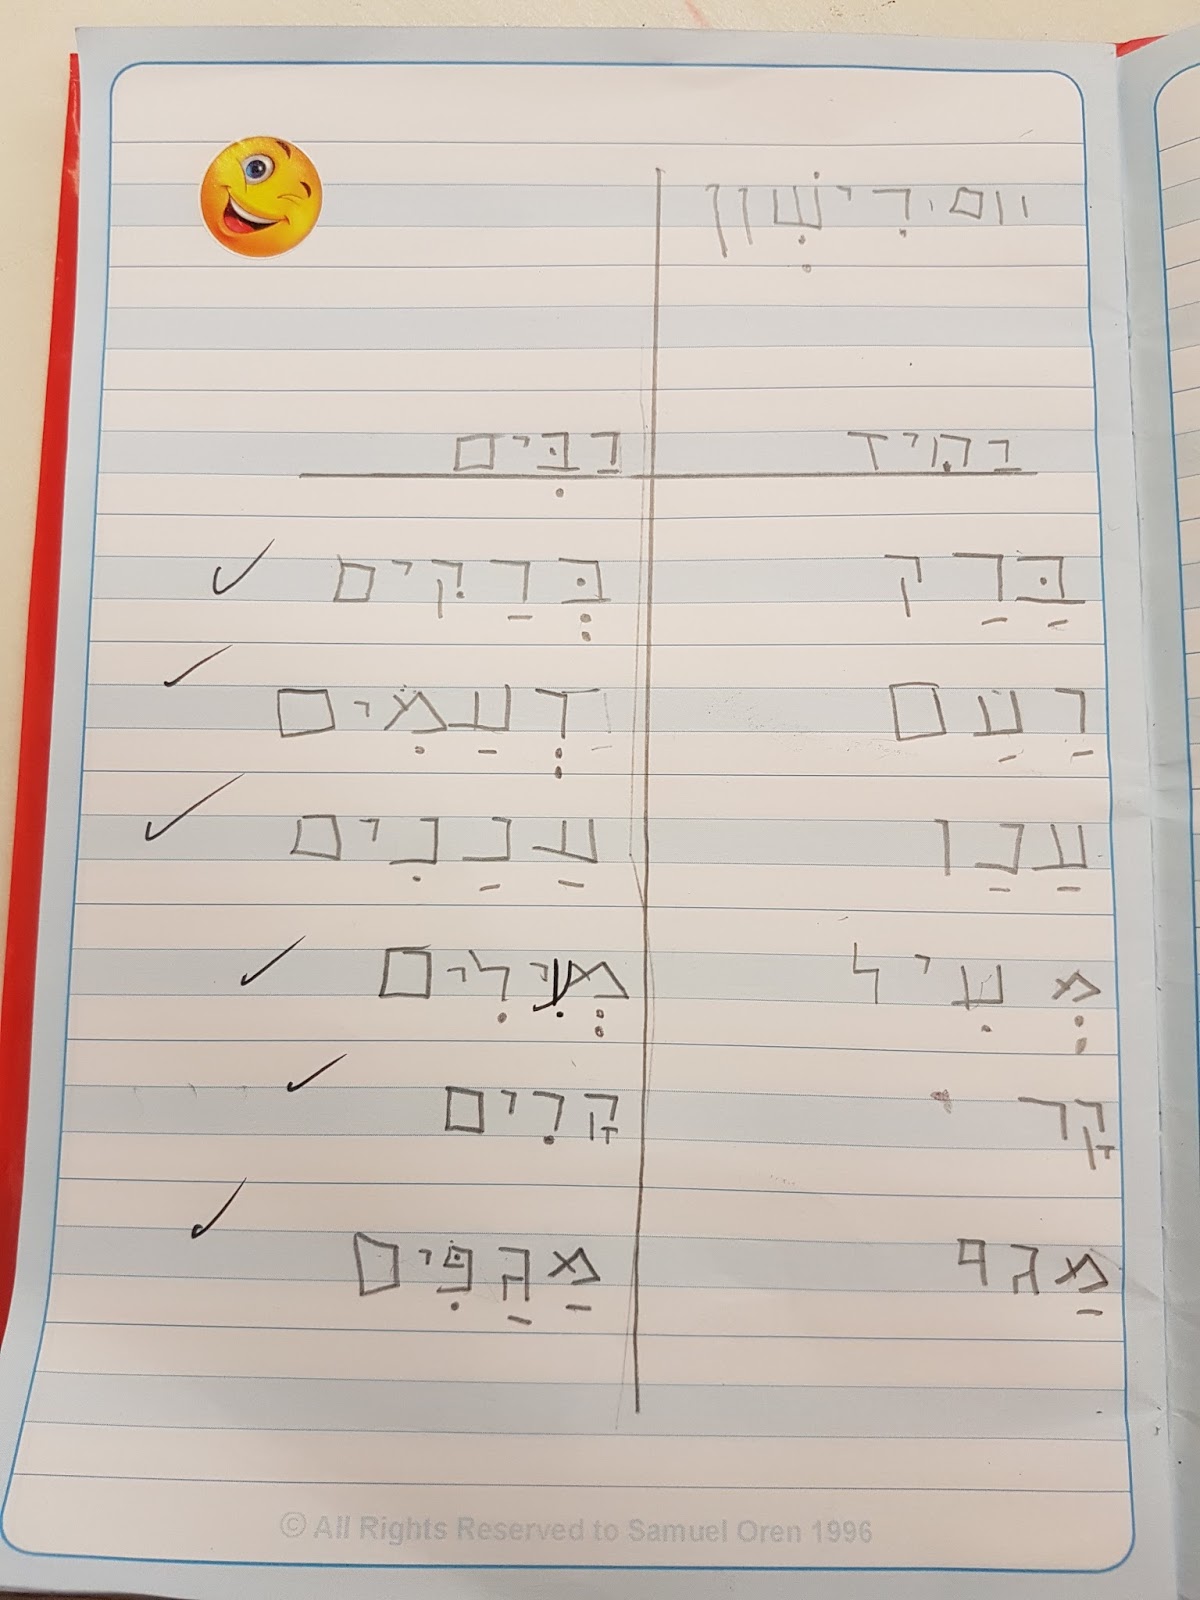 יום רִישִׁון
יחיד רבִּים
בַּרַק בְּרַקִים
רַעַם רְעַמִים
עַנַן עַנַנִים
מְעִיל מְעִילִים
קָר קָרִים
מַגף מַגַפִּים
© All Rights Reserved to Samuel Oren 1996